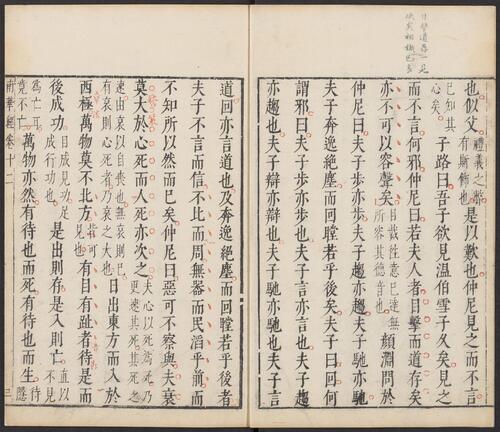 也似父禮義之弊有斯飾也是以歎也仲尼見之而不言
已知其心矣子路曰吾子欲見温伯雪子久矣見之
而不言何邪仲尼曰若夫人者目擊而道存矣
亦不可以容聲矣目裁往意已達無所容其德音也顔淵問於
仲尼曰夫子步亦步夫子趨亦趨夫子馳亦馳
夫子奔逸絶塵而回瞠若乎後矣夫子曰回何
謂邪曰夫子步亦步也夫子言亦言也夫子趨
亦趨也夫子辯亦辯也夫子馳亦馳也夫子言
道回亦言道也及奔逸絶塵而回瞠若乎後者
夫子不言而信不比而周無器而民滔乎前而
不知所以然而已矣仲尼曰惡可不察與夫哀
莫大於心死而人死亦次之夫心以死為死乃更速其死其死之
速由哀以自喪也無哀則已有哀則心死者乃哀之大也日出東方而入於
西極萬物莫不比方皆可見也有目有趾者待是而
後成功目成見功足成行功也是出則存是入則亡直以不見
為亡耳竟不亡萬物亦然有待也而死有待也而生待隱
南華經卷十二 三